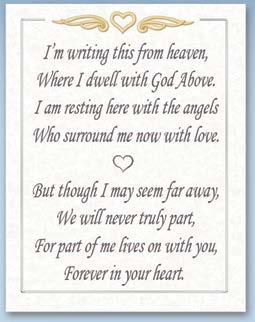 I'm writing this from heaven,
Where I dwell with God Above.
I am resting here with the angels
Who surround me now with love.
But though I may seem far away,
We will never truly part,
For part of me lives on with you,
Forever in your heart.